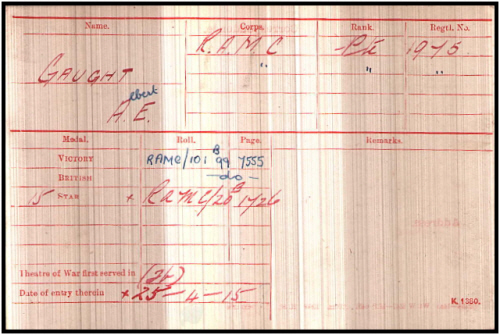 Name. Corps. Rank. Regtl. No.
R.A.M.C Pte 1975
GAUGHT " " "
Albert
A.E.
Medal. Roll. Page. Remarks.
VICTORY RAMC/101 B 99 7555
BRITISH -do-
15 STAR + RAMC/20 B 1726
Theatre of War first served in (2b)
Date of entry therein + 25-4-15
K. 1380.